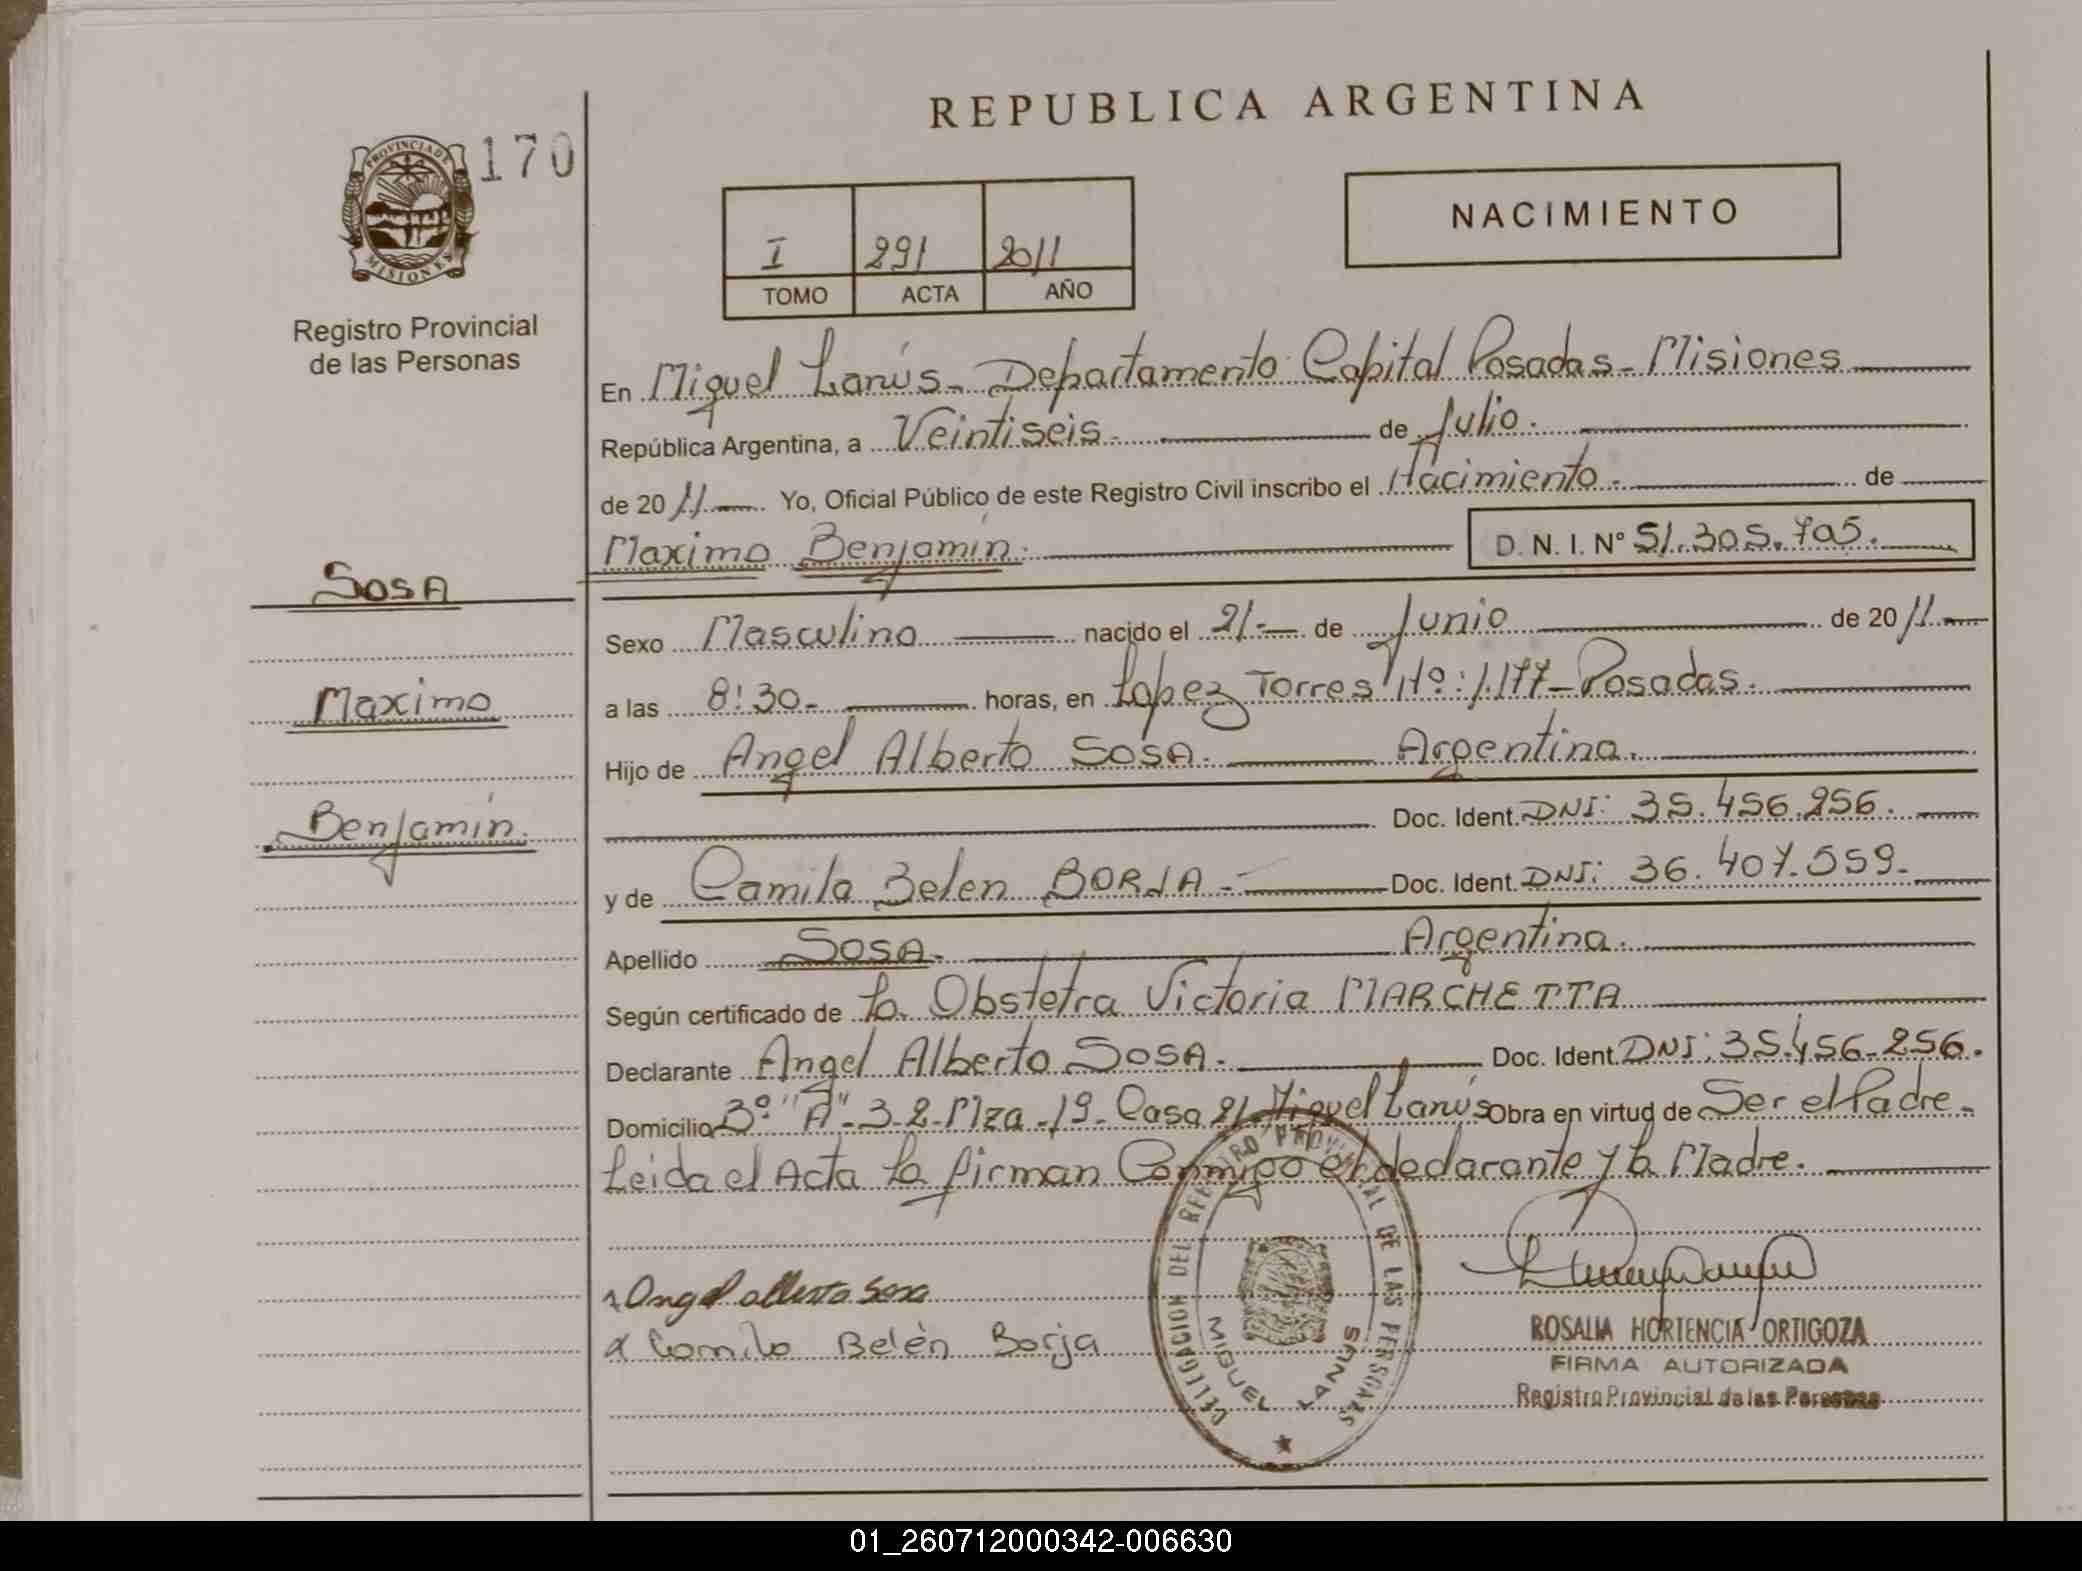 REPUBLICA ARGENTINA
PROVINCIA DE MISIONES
170
NACIMIENTO
I 291 2011
TOMO ACTA AÑO
Registro Provincial
de las Personas
En Miguel Lanús - Departamento Capital Posadas - Misiones
República Argentina, a Veintiseis.- de Julio.
de 2011 Yo, Oficial Público de este Registro Civil inscribo el Nacimiento. de
Maximo Benjamín. D. N. I. N° 51.305.705.
SOSA
Sexo Masculino nacido el 21.- de Junio de 2011.
Maximo
a las 8:30- horas, en Lopez Torres Nº: 1.177- Posadas.
Hijo de Angel Alberto SOSA. Argentina.
Benjamín.
Doc. Ident. DNI: 35.456.256.
y de Camila Belen BORJA - Doc. Ident. DNI: 36.407.559-
Apellido SOSA. Argentina.
Según certificado de la Obstetra Victoria MARCHETTA
Declarante Angel Alberto SOSA. Doc. Ident. DNI: 35.456.256.
Domicilio 3º "A"- 3-2-Mza-19- Casa 21 Miguel Lanús Obra en virtud de Ser el Padre.
Leida el Acta la firman Conmigo el declarante y la Madre.
x Angel alberto Sosa
x Camila Belén Borja
DELEGACION DEL REGISTRO PROVINCIAL DE LAS PERSONAS
MIGUEL LANUS
ROSALIA HORTENCIA ORTIGOZA
FIRMA AUTORIZADA
Registro Provincial de las Personas
01_260712000342-006630